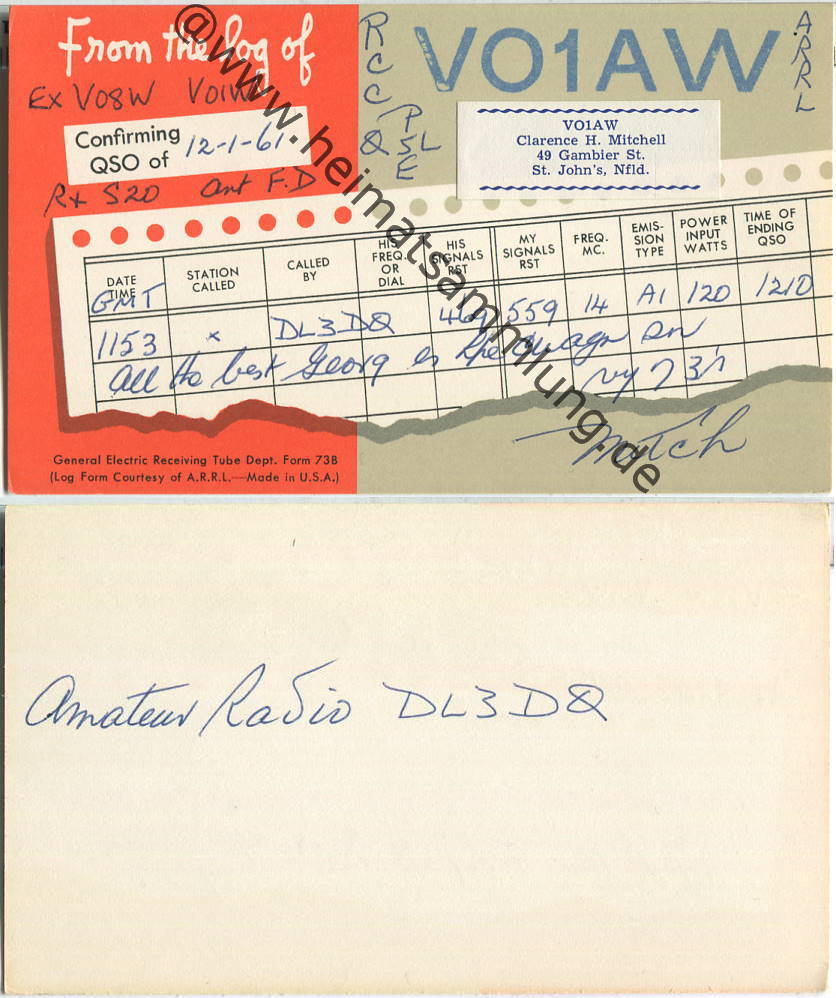 From the log of
VO1AW
RCC
ARRL
Ex VO8W VO1W
Confirming QSO of 12-1-61
PSE
QSL
VO1AW
Clarence H. Mitchell
49 Gambier St.
St. John's, Nfld.
Rx S20 Ant F.D
DATE TIME STATION CALLED CALLED BY HIS FREQ. OR DIAL HIS SIGNALS RST MY SIGNALS RST FREQ. MC. EMIS-SION TYPE POWER INPUT WATTS TIME OF ENDING QSO
GMT
1153 x DL3DQ 559 14 A1 120 1210
All the best Georg es agn sn
vy 73's
Mitch
General Electric Receiving Tube Dept. Form 73B
(Log Form Courtesy of A.R.R.L.—Made in U.S.A.)
@www.heimatsammlung.de
Amateur Radio DL3DQ